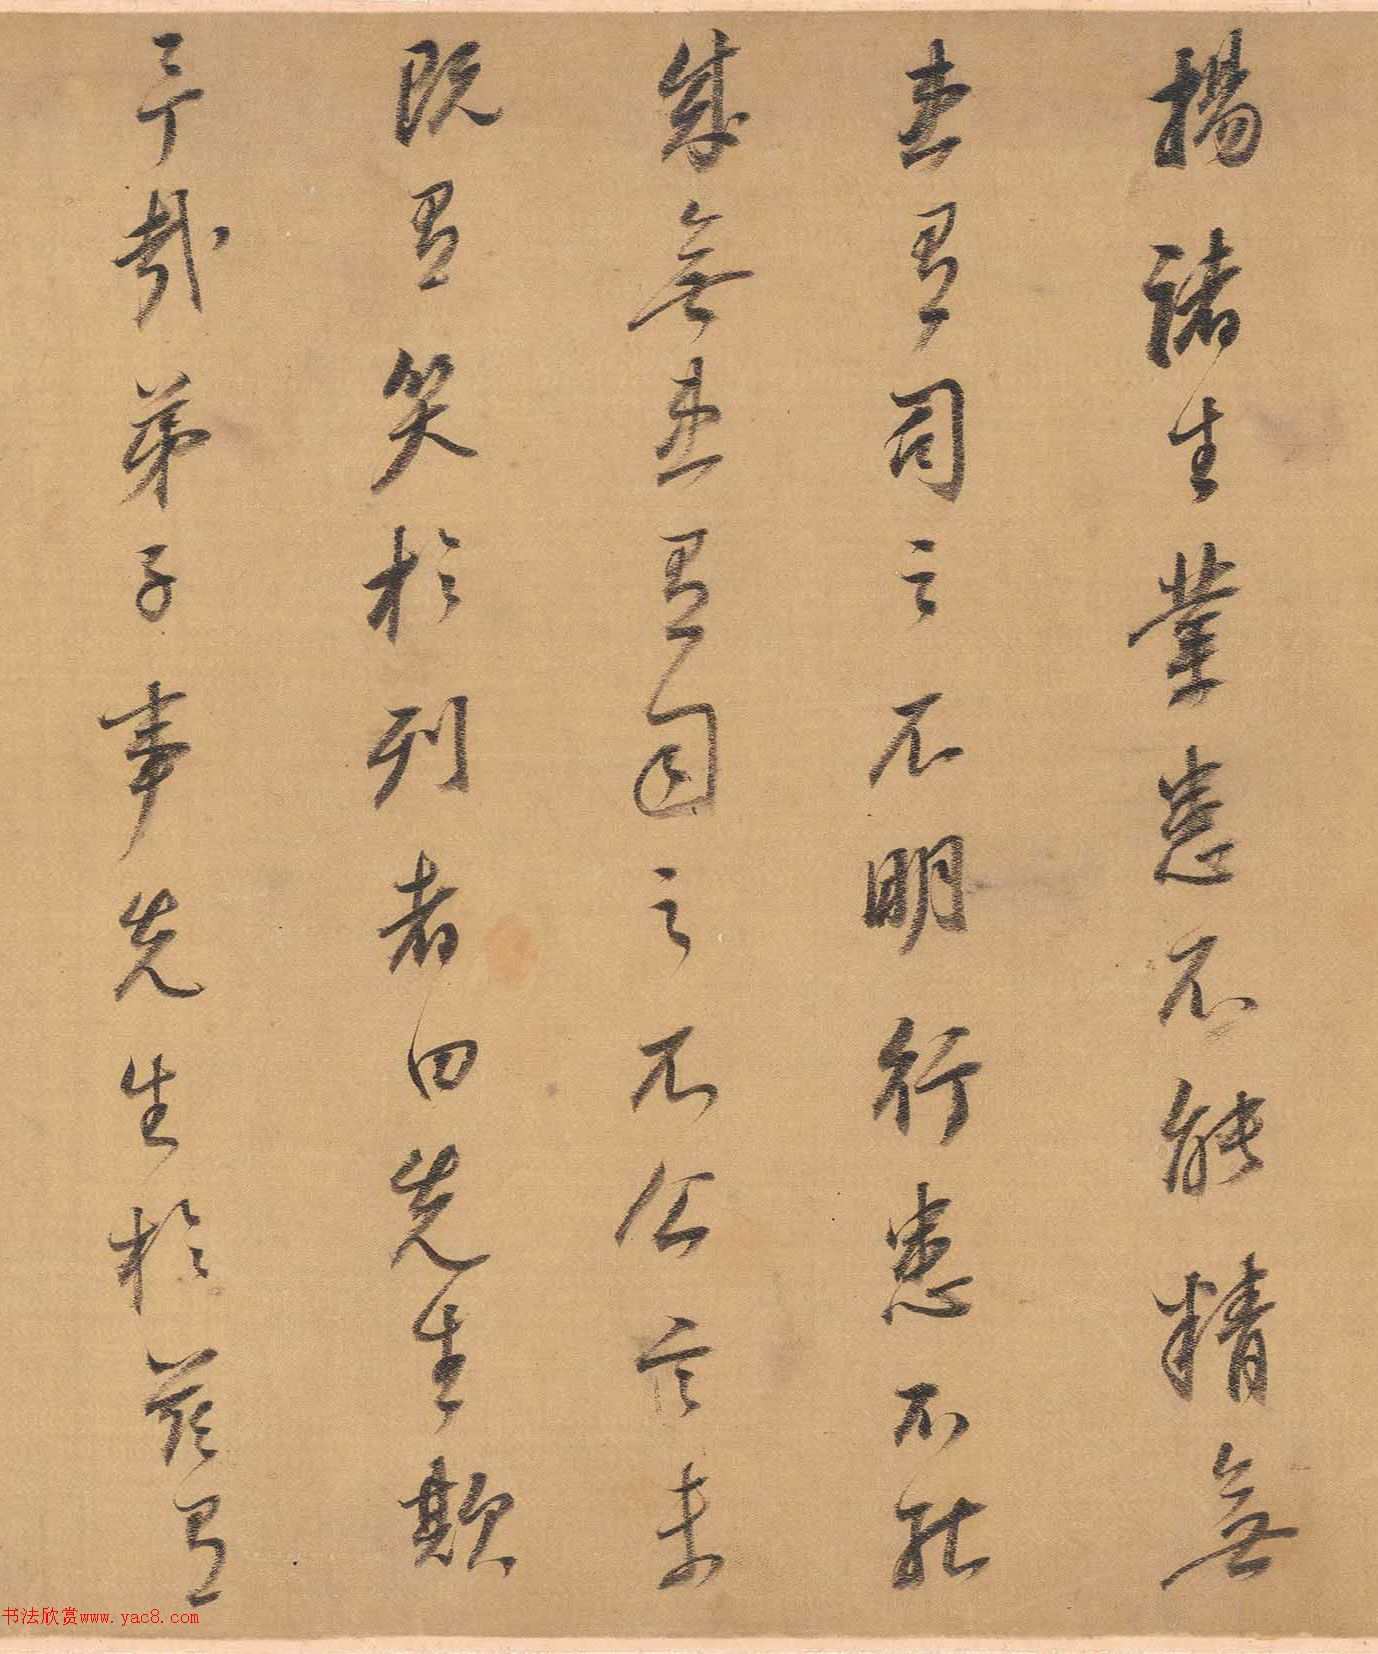 揚諸生業患不能精無
患有司之不明行患不能
成無患有司之不公言未
既有笑於列者曰先生欺
予哉弟子事先生於茲有
书法欣赏www.yac8.com